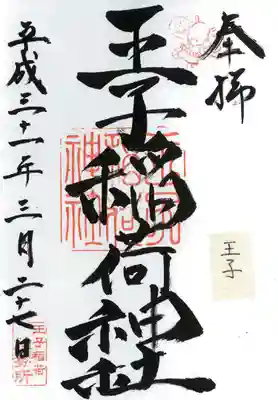 奉拝
王子稲荷神社
平成三十一年三月二十七日
王子
王子稲荷